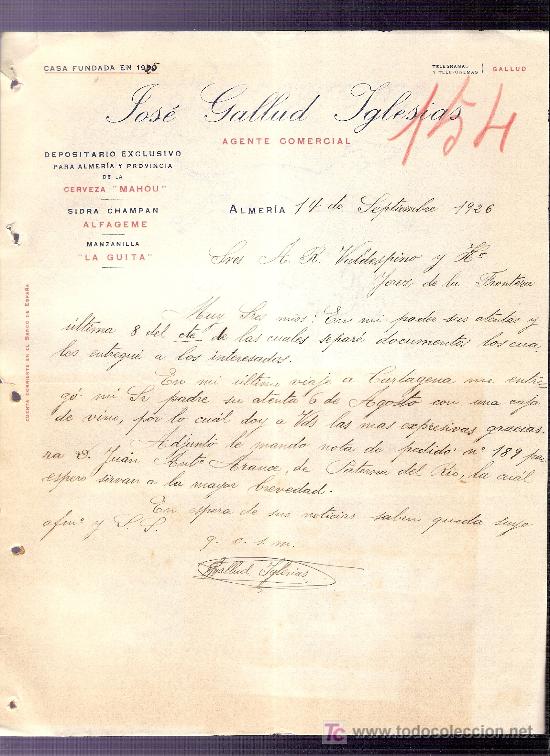 CASA FUNDADA EN 1925
TELEGRAMAS Y TELEFONEMAS | GALLUD
José Gallud Iglesias
154
AGENTE COMERCIAL
DEPOSITARIO EXCLUSIVO
PARA ALMERÍA Y PROVINCIA
DE LA
CERVEZA "MAHOU"
SIDRA CHAMPAN
ALFAGEME
MANZANILLA
"LA GUITA"
CUENTA CORRIENTE EN EL BANCO DE ESPAÑA
ALMERÍA 14 de Septiembre 1926
Sres A. R. Valdespino y Hº
Jerez de la Frontera
Muy Sres mos: En mi poder sus atentas y
última 8 del cte. de las cuales separé documentos los cua-
les entregué a los interesados.
En mi último viaje a Cartagena me entre-
gó mi Sr padre su atenta 6 de Agosto con una caja
de vino, por lo cuál doy a Vds las mas expresivas gracias.
Adjunto le mando nota de pedido nº 189 pa-
ra D. Juán Antº de del Rio, la cuál
espero sirvan a la mayor brevedad.
En espera de sus noticias saben queda suyo
afmº y S.S.
q. e. s. m.
Gallud Iglesias
todocoleccion.net